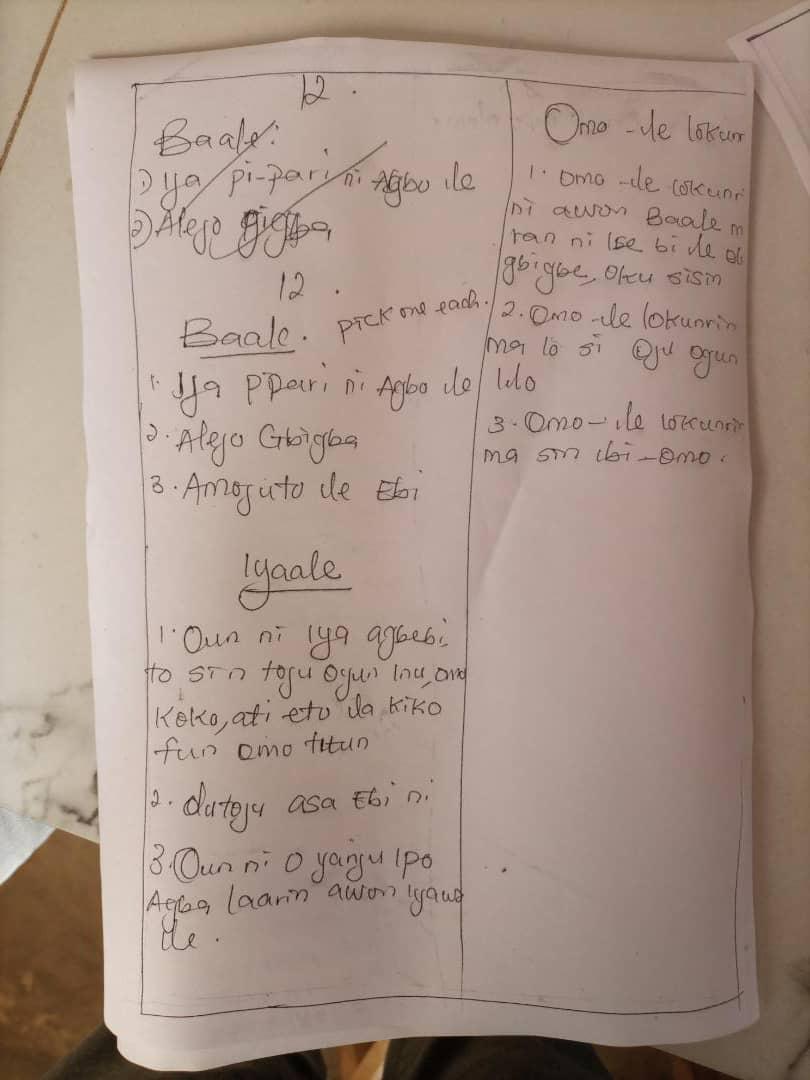 12.
Baale:
1) Ija pi-pari ni Agbo ile
2) Alejo gigba
12.
Baale. pick one each.
1. Ija pipari ni Agbo ile
2. Alejo Gbigba
3. Amojuto ile Ebi
Iyaale
1. Oun ni iya agbebi
to sin toju oyun inu, omo
koko, ati eto ila kiko
fun omo titun
2. dutoju asa Ebi ni
3. Oun ni o yanju ipo
Agba laarin awon iyawo
ile.
Omo-ile lokunr
1. omo-ile lokunr
ni awon Baale m
ran ni ise bi ile
gbigbe, oku sisin
2. Omo-ile lokunrin
ma lo si Oju ogun
lilo
3. Omo-ile lokunrin
ma sin ibi-omo.